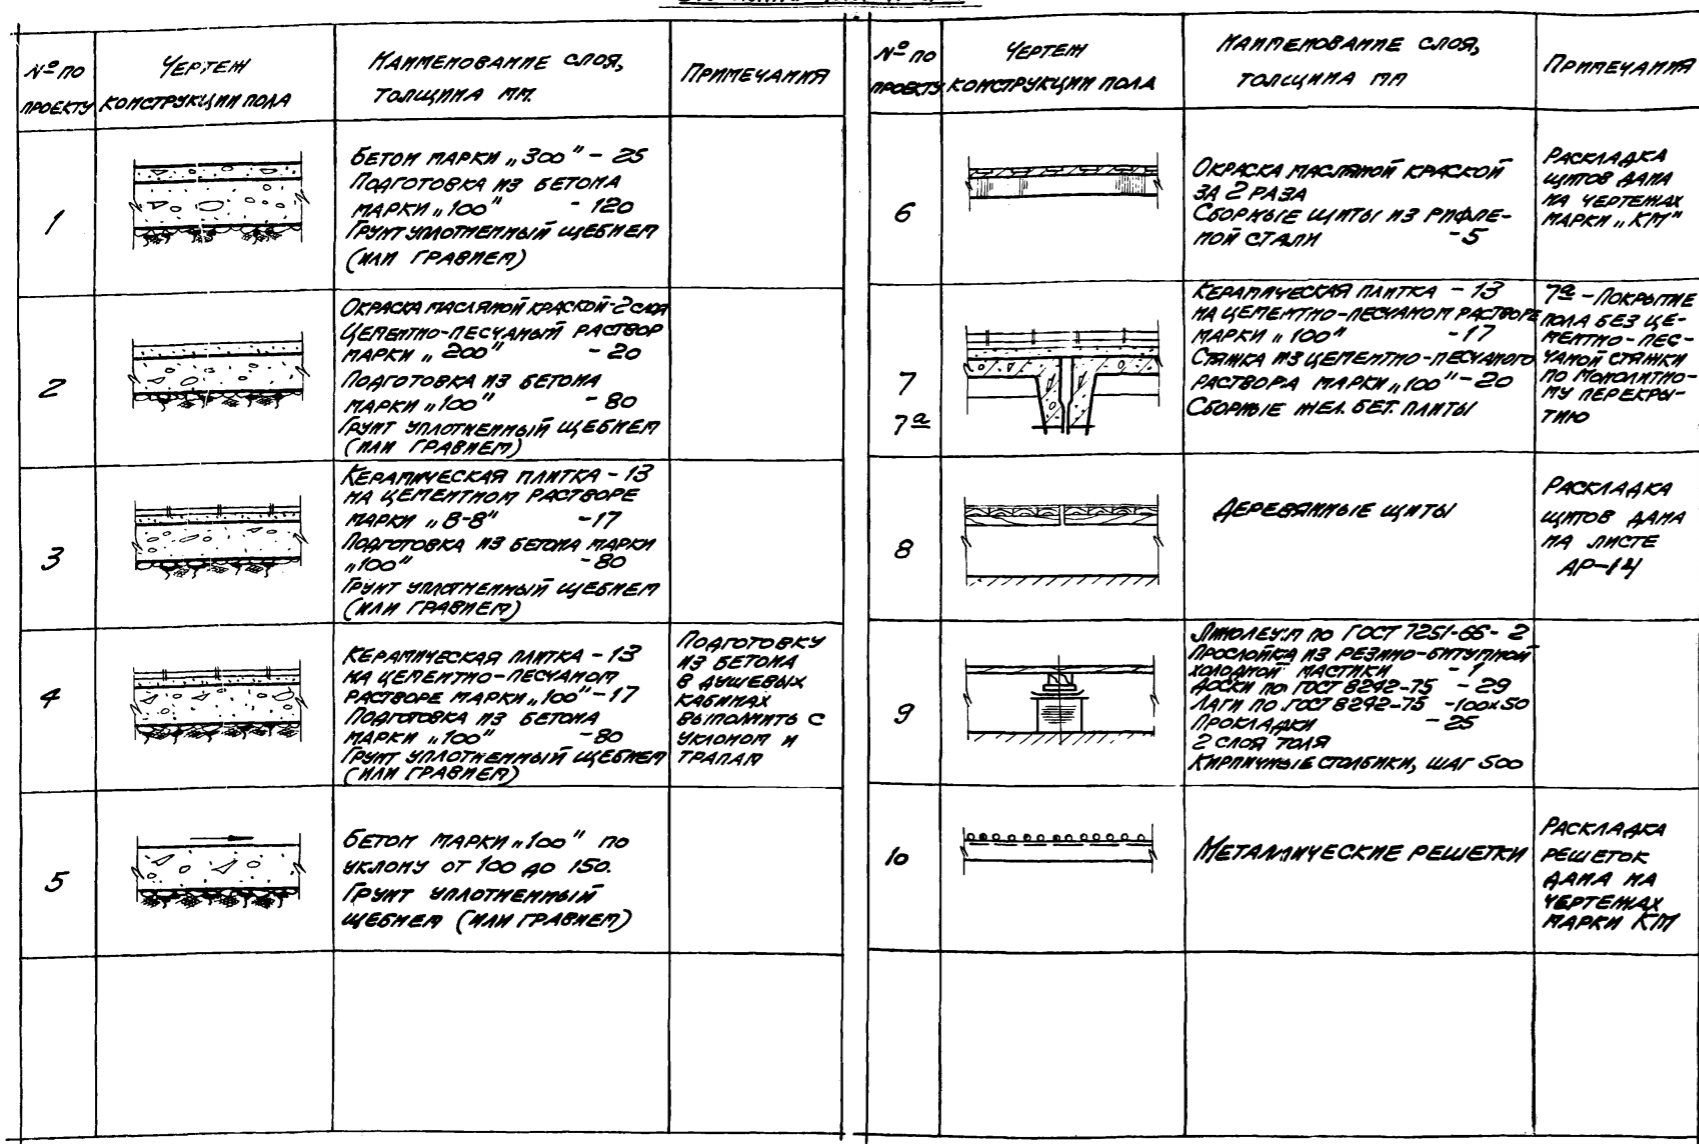 № ПО
ПРОЕКТУ
ЧЕРТЕЖ
КОНСТРУКЦИИ ПОЛА
НАИМЕНОВАНИЕ СЛОЯ,
ТОЛЩИНА ММ.
ПРИМЕЧАНИЯ
1
БЕТОН МАРКИ „300" - 25
ПОДГОТОВКА ИЗ БЕТОНА
МАРКИ „100" - 120
ГРУНТ УПЛОТНЕННЫЙ ЩЕБНЕМ
(ИЛИ ГРАВИЕМ)
2
ОКРАСКА МАСЛЯНОЙ КРАСКОЙ-2 СЛОЯ
ЦЕМЕНТНО-ПЕСЧАНЫЙ РАСТВОР
МАРКИ „200" - 20
ПОДГОТОВКА ИЗ БЕТОНА
МАРКИ „100" - 80
ГРУНТ УПЛОТНЕННЫЙ ЩЕБНЕМ
(ИЛИ ГРАВИЕМ)
3
КЕРАМИЧЕСКАЯ ПЛИТКА - 13
НА ЦЕМЕНТНОМ РАСТВОРЕ
МАРКИ „В-8" - 17
ПОДГОТОВКА ИЗ БЕТОНА МАРКИ
„100" - 80
ГРУНТ УПЛОТНЕННЫЙ ЩЕБНЕМ
(ИЛИ ГРАВИЕМ)
4
КЕРАМИЧЕСКАЯ ПЛИТКА - 13
НА ЦЕМЕНТНО-ПЕСЧАНОМ
РАСТВОРЕ МАРКИ „100" - 17
ПОДГОТОВКА ИЗ БЕТОНА
МАРКИ „100" - 80
ГРУНТ УПЛОТНЕННЫЙ ЩЕБНЕМ
(ИЛИ ГРАВИЕМ)
ПОДГОТОВКУ
ИЗ БЕТОНА
В ДУШЕВЫХ
КАБИНАХ
ВЫПОЛНИТЬ С
УКЛОНОМ К
ТРАПАМ
5
БЕТОН МАРКИ „100" ПО
УКЛОНУ ОТ 100 ДО 150.
ГРУНТ УПЛОТНЕННЫЙ
ЩЕБНЕМ (ИЛИ ГРАВИЕМ)
№ ПО
ПРОЕКТУ
ЧЕРТЕЖ
КОНСТРУКЦИИ ПОЛА
НАИМЕНОВАНИЕ СЛОЯ,
ТОЛЩИНА ММ
ПРИМЕЧАНИЯ
6
ОКРАСКА МАСЛЯНОЙ КРАСКОЙ
ЗА 2 РАЗА
СБОРНЫЕ ЩИТЫ ИЗ РИФЛЕ-
НОЙ СТАЛИ - 5
РАСКЛАДКА
ЩИТОВ ДАНА
НА ЧЕРТЕЖАХ
МАРКИ „КМ"
7
7а
КЕРАМИЧЕСКАЯ ПЛИТКА - 13
НА ЦЕМЕНТНО-ПЕСЧАНОМ РАСТВОРЕ
МАРКИ „100" - 17
СТЯЖКА ИЗ ЦЕМЕНТНО-ПЕСЧАНОГО
РАСТВОРА МАРКИ „100" - 20
СБОРНЫЕ ЖЕЛ. БЕТ. ПЛИТЫ
7а - ПОКРЫТИЕ
ПОЛА БЕЗ ЦЕ-
МЕНТНО-ПЕС-
ЧАНОЙ СТЯЖКИ
ПО МОНОЛИТНО-
МУ ПЕРЕКРЫ-
ТИЮ
8
ДЕРЕВЯННЫЕ ЩИТЫ
РАСКЛАДКА
ЩИТОВ ДАНА
НА ЛИСТЕ
АР-14
9
ЛИНОЛЕУМ ПО ГОСТ 7251-66 - 2
ПРОСЛОЙКА ИЗ РЕЗИНО-БИТУМНОЙ
ХОЛОДНОЙ МАСТИКИ - 1
ДОСКИ ПО ГОСТ 8242-75 - 29
ЛАГИ ПО ГОСТ 8242-75 - 100х50
ПРОКЛАДКИ - 25
2 СЛОЯ ТОЛЯ
КИРПИЧНЫЕ СТОЛБИКИ, ШАГ 500
10
МЕТАЛЛИЧЕСКИЕ РЕШЕТКИ
РАСКЛАДКА
РЕШЕТОК
ДАНА НА
ЧЕРТЕЖАХ
МАРКИ КМ